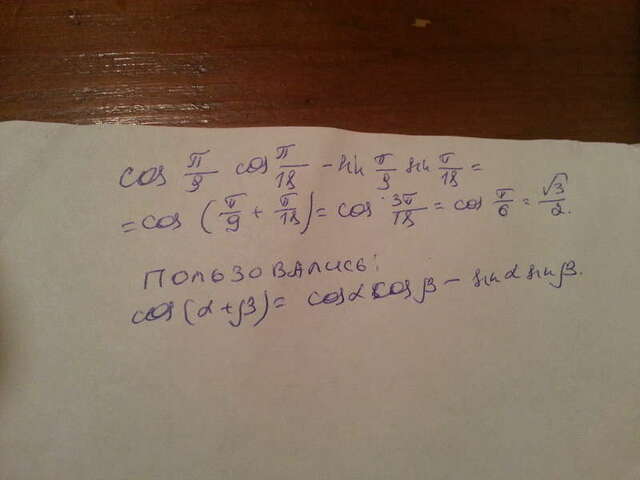 cos π/9 cos π/18 − sin π/9 sin π/18 =
= cos (π/9 + π/18) = cos 3π/18 = cos π/6 = √3/2.
Пользовались:
cos(α+β) = cosα cosβ − sinα sinβ.